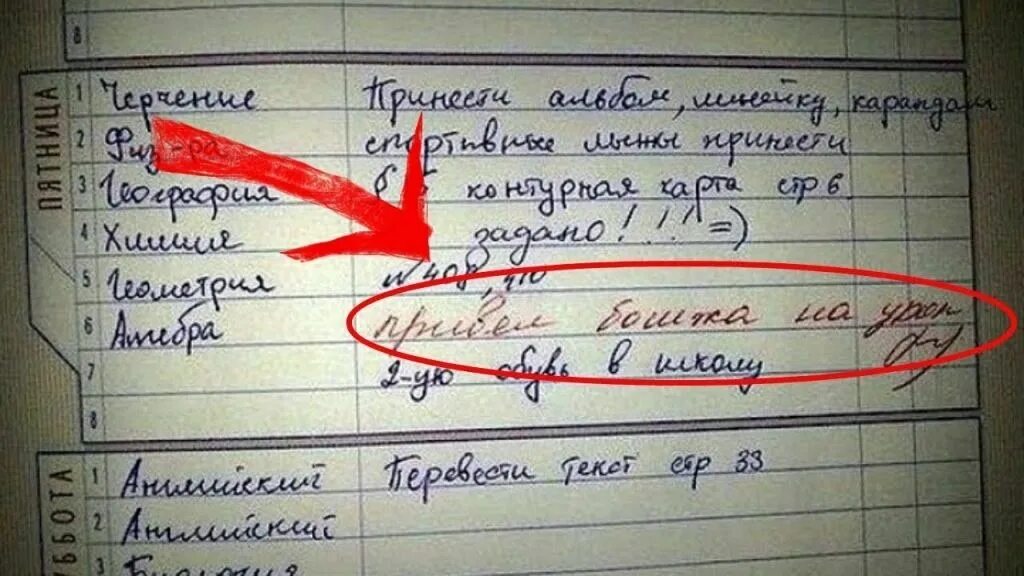 8
ПЯТНИЦА
1 Черчение Принести альбом, линейку, карандаш
2 Физ-ра спортивные лыжы принести
3 География контурная карта стр 6
4 Химия задано!!! =)
5 Геометрия
6 Алгебра привел бомжа на урок
7 2-ую обувь в школу
8
СУББОТА
1 Английский Перевести текст стр 33
2 Английский
3 Биология